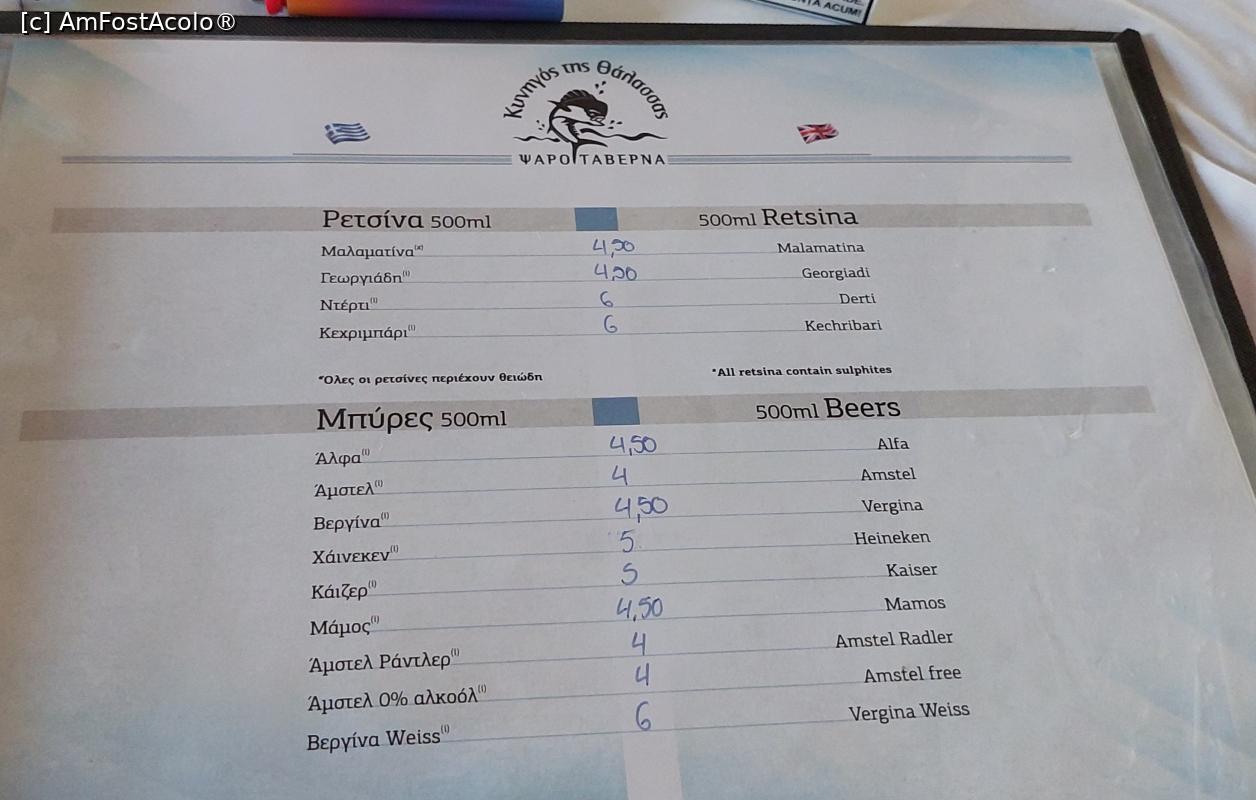 [c] AmFostAcolo®
ACUM!
Κυνηγός της Θάλασσας
ΨΑΡΟΤΑΒΕΡΝΑ
Ρετσίνα 500ml 500ml Retsina
Μαλαματίνα 4,50 Malamatina
Γεωργιάδη(l) 4,50 Georgiadi
Ντέρτι(l) 6 Derti
Κεχριμπάρι(l) 6 Kechribari
*Όλες οι ρετσίνες περιέχουν θειώδη *All retsina contain sulphites
Μπύρες 500ml 500ml Beers
Άλφα(l) 4,50 Alfa
Άμστελ(l) 4 Amstel
Βεργίνα(l) 4,50 Vergina
Χάινεκεν(l) 5 Heineken
Κάιζερ(l) 5 Kaiser
Μάμος(l) 4,50 Mamos
Άμστελ Ράντλερ(l) 4 Amstel Radler
Άμστελ 0% αλκοόλ(l) 4 Amstel free
Βεργίνα Weiss(l) 6 Vergina Weiss